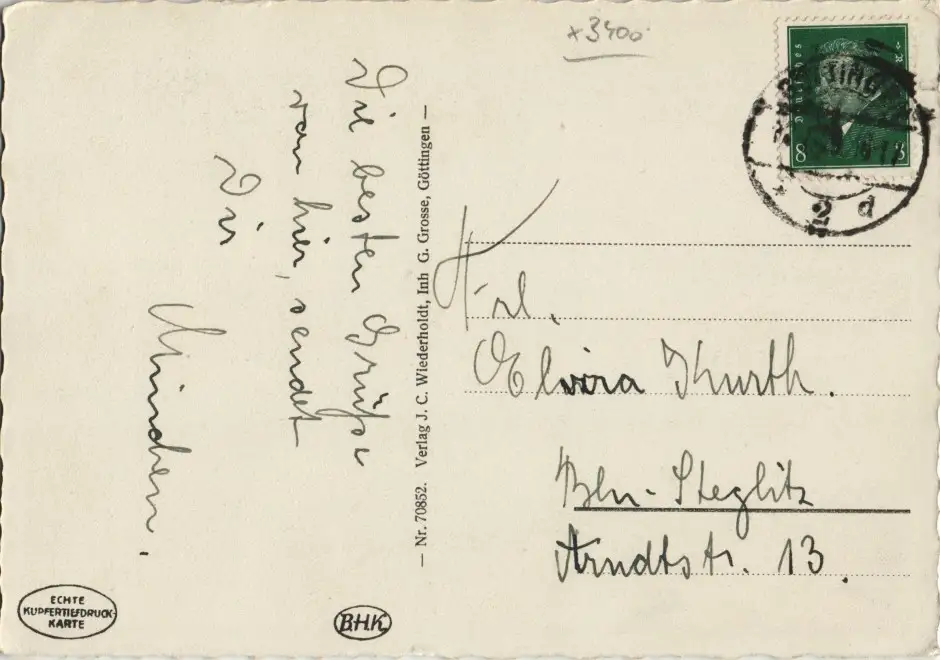 x3400
Die besten Grüße
von hier, sendet
Dir
Minchen.
— Nr. 70852. Verlag J. C. Wiederholdt, Inh G. Grosse, Göttingen —
Deutsches
8 8
2 d
Frl.
Elvira Kurth.
Bln-Steglitz
Arndtstr. 13.
ECHTE
KUPFERTIEFDRUCK-
KARTE
B.H.K.